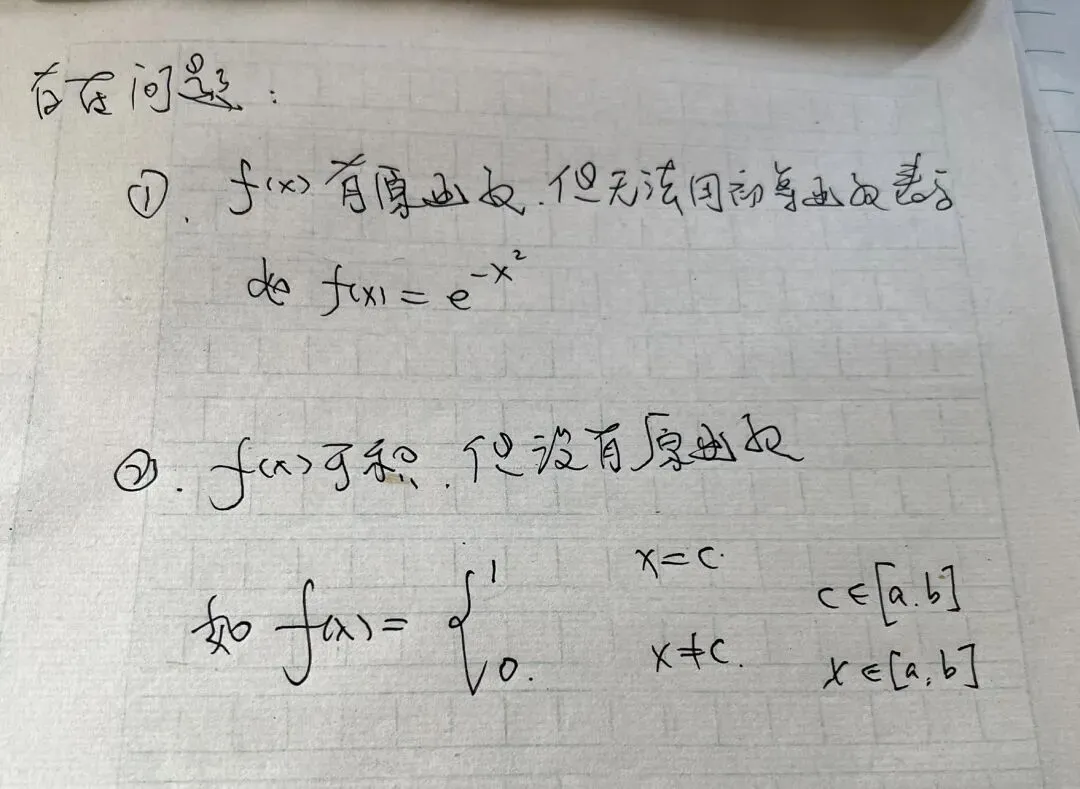 存在问题：
①. f(x)有原函数.但无法用初等函数表示
如 f(x) = e^{-x^2}
②. f(x)可积.但没有原函数
如 f(x) = { 1 x=c. c∈[a.b]
0. x≠c. x∈[a,b]